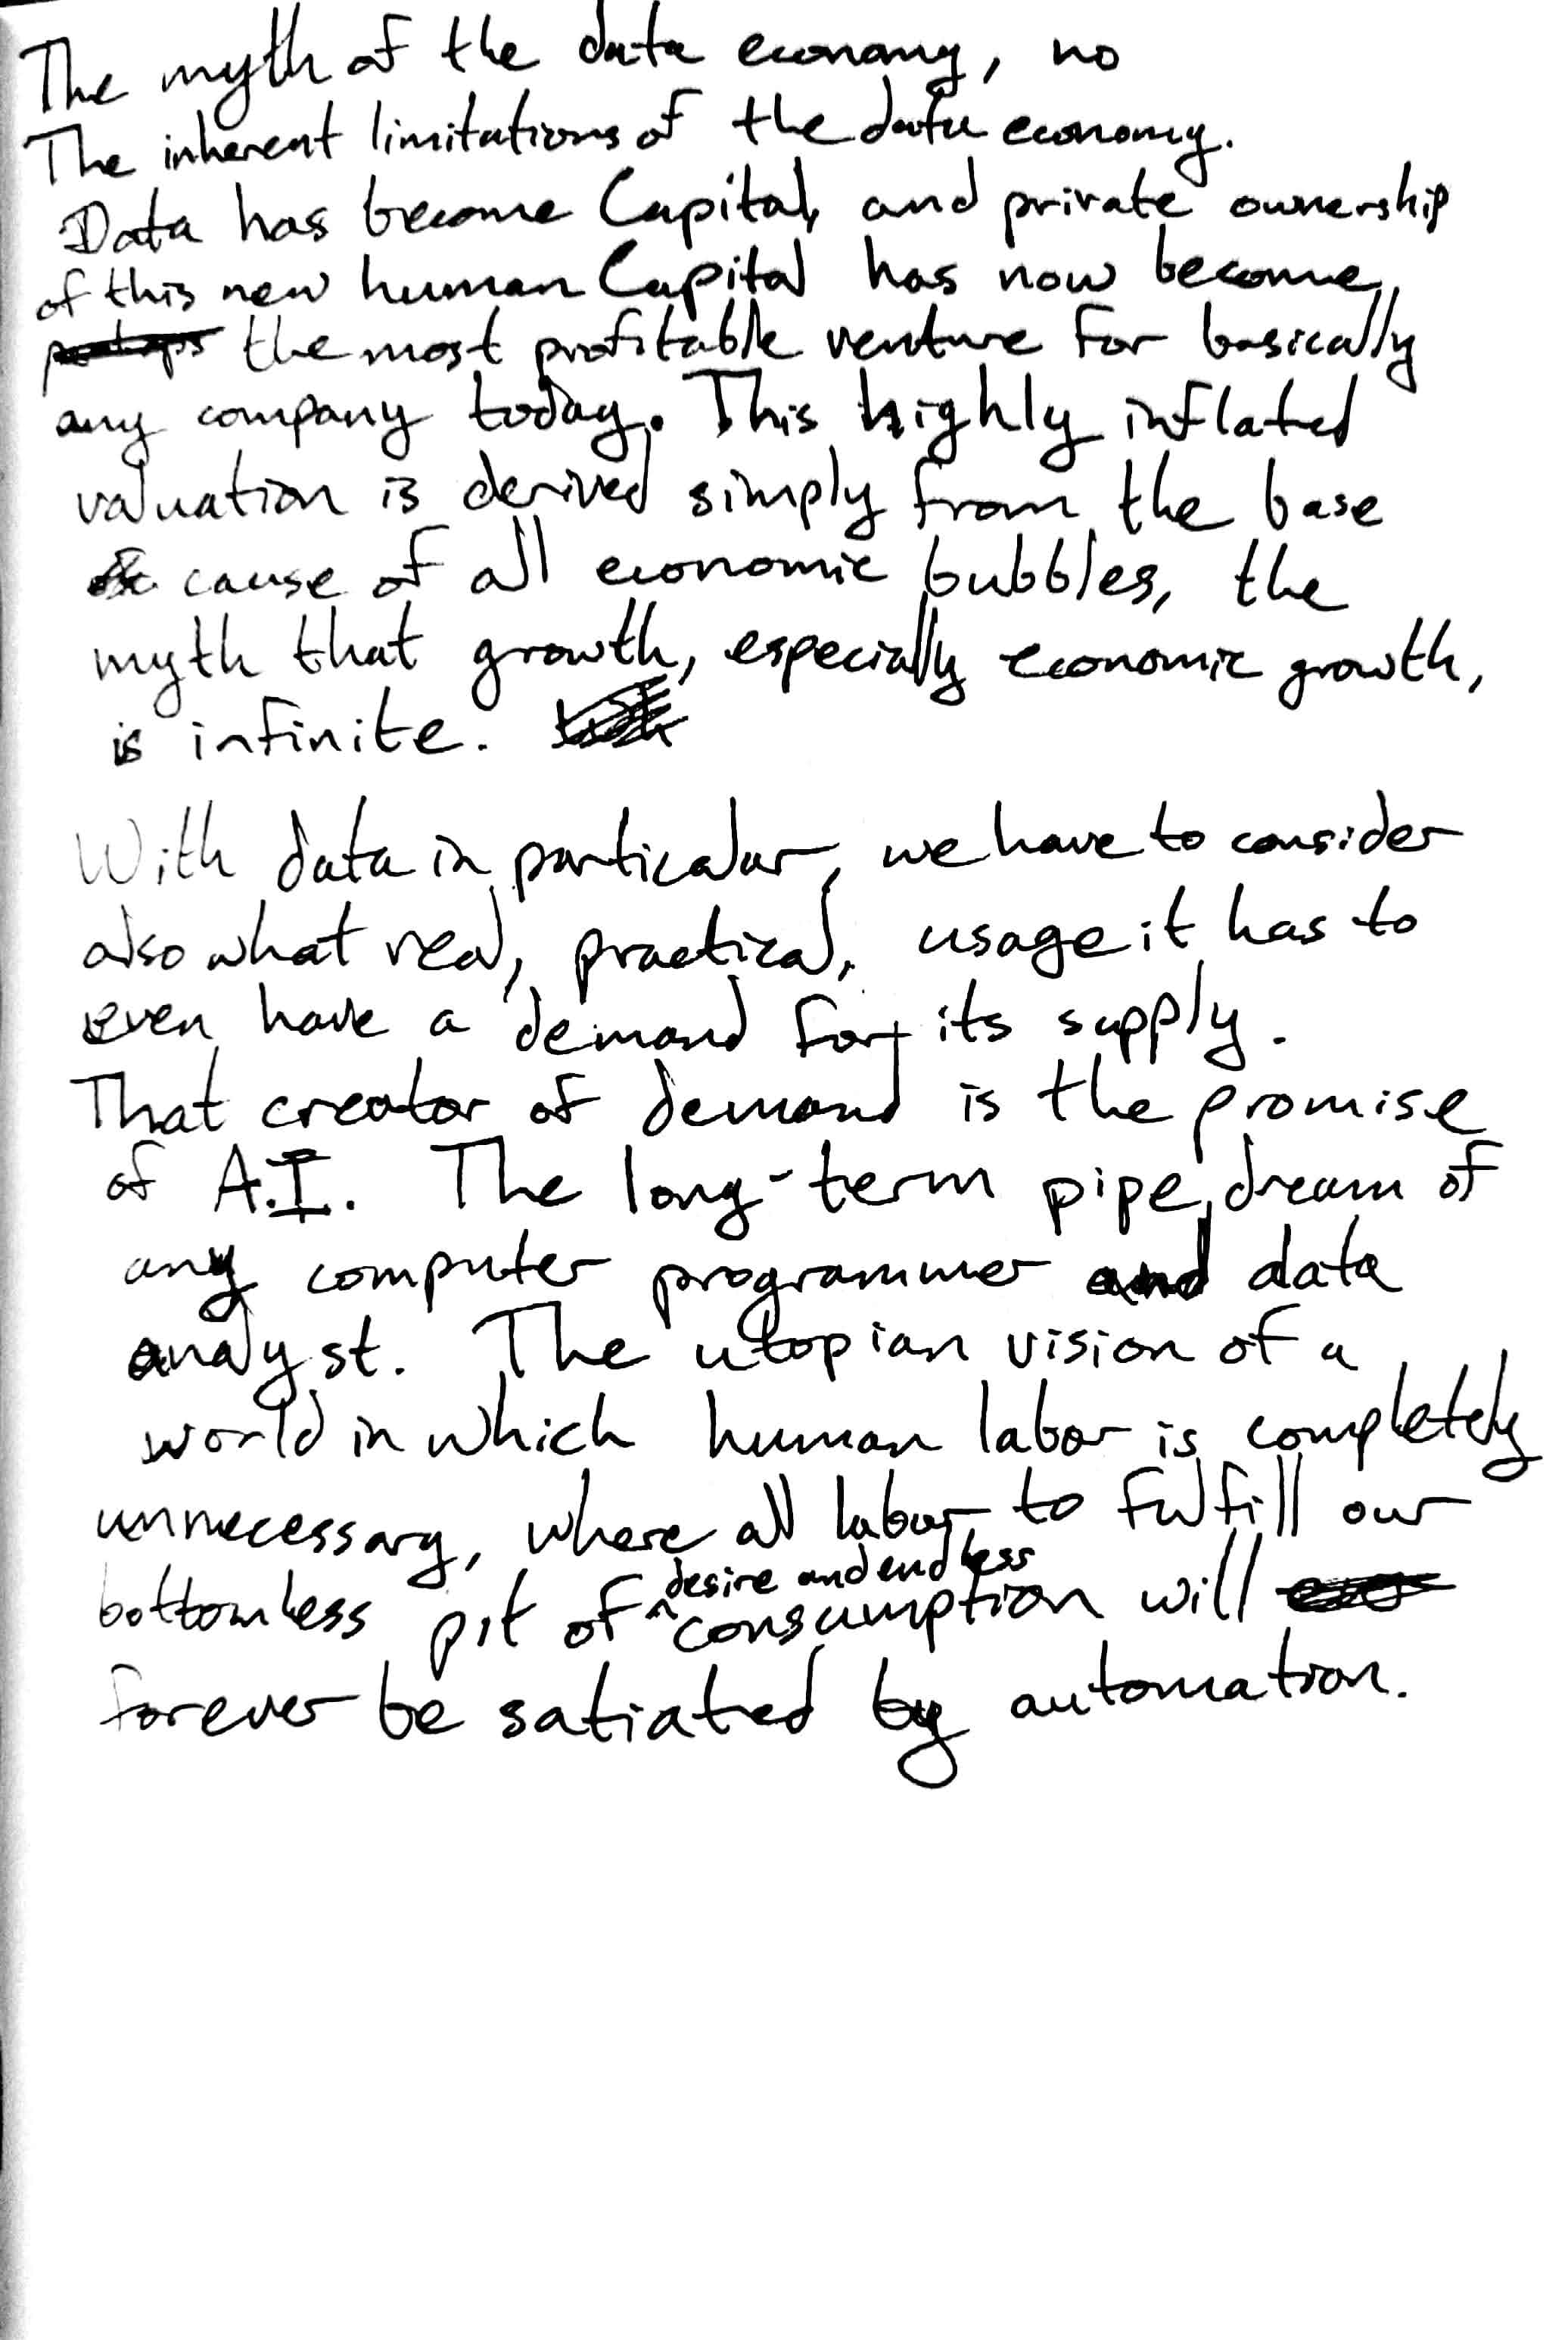 The myth of the data economy, no
The inherent limitations of the data economy.
Data has become Capital, and private ownership
of this new human Capital has now become,
perhaps the most profitable venture for basically
any company today. This highly inflated
valuation is derived simply from the base
cause of all economic bubbles, the
myth that growth, especially economic growth,
is infinite.
With data in particular, we have to consider
also what real, practical, usage it has to
even have a demand for its supply.
That creator of demand is the promise
of A.I. The long-term pipe dream of
any computer programmer and data
analyst. The utopian vision of a
world in which human labor is completely
unnecessary, where all labor to fulfill our
desire and endless
bottomless pit of ^ consumption will
forever be satiated by automation.